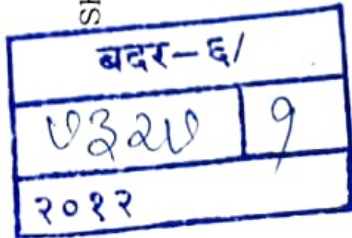 SI
बदर-६/
७३२७ १
२०१२